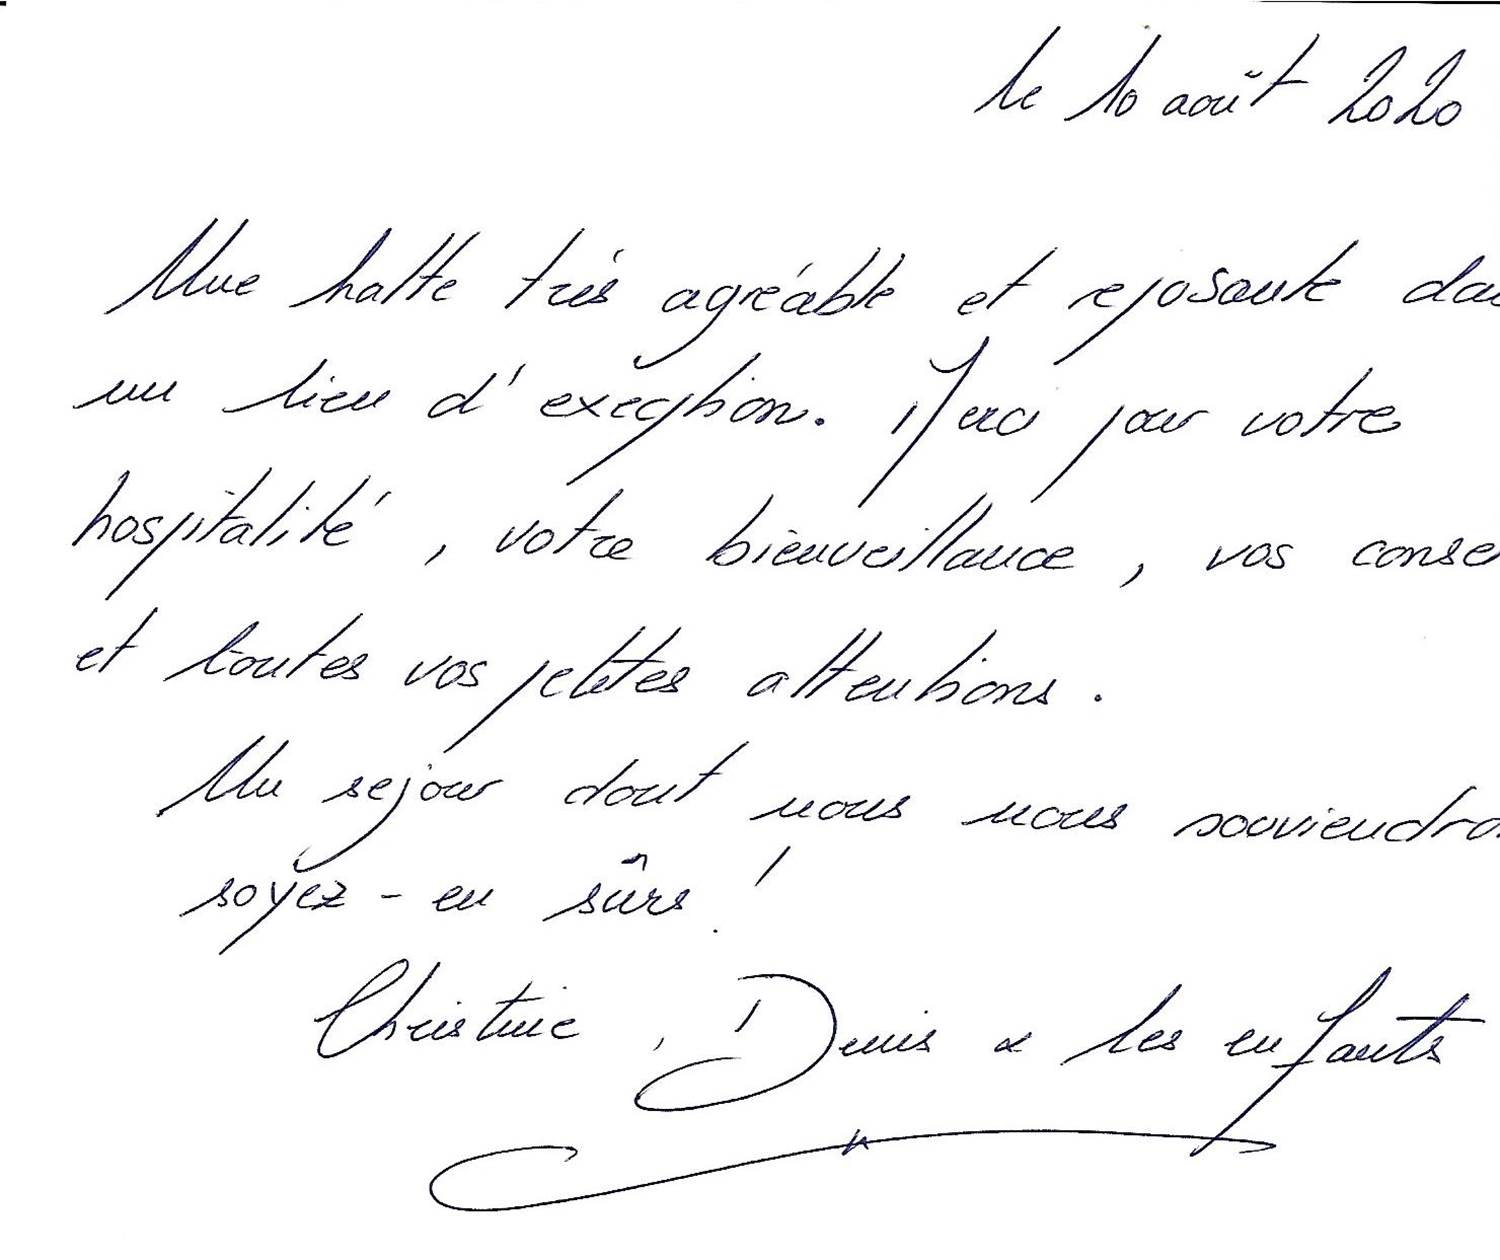 le 10 août 2020
Une halte très agréable et reposante da
un lieu d'exception. Merci pour votre
hospitalité, votre bienveillance, vos conse
et toutes vos petites attentions.
Un sejour dont nous nous souviendro
soyez-en sûrs !
Christine, Denis & les enfants